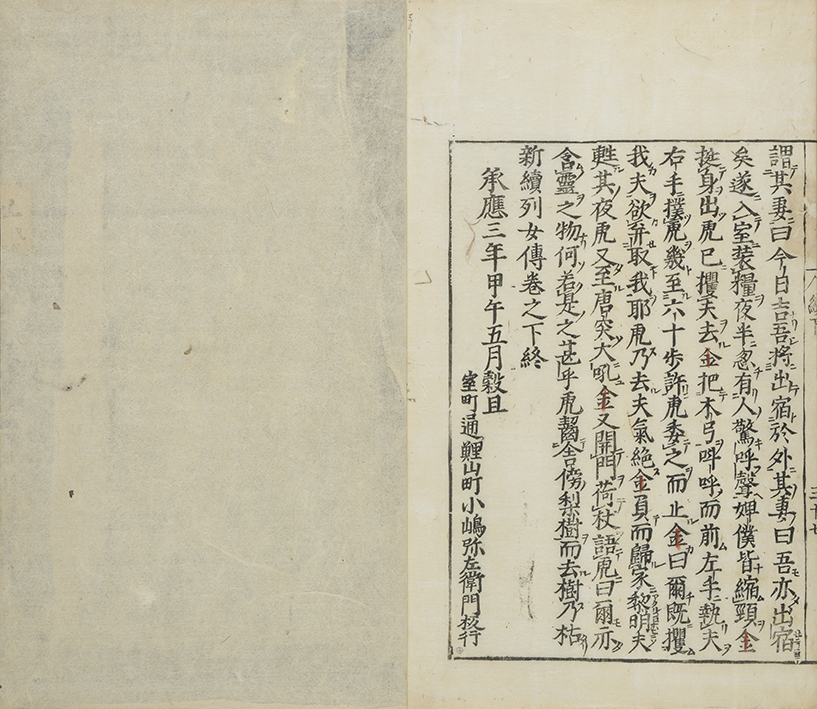 謂其妻曰今日吉吾將出宿於外其妻曰吾亦出宿
矣遂入室裝糧夜半忽有人驚呼聲婢僕皆縮頸金
挺身出虎已攫夫去金把木弓呌呼而前左手執夫
右手撲虎幾至六十歩許虎委之而止金曰爾既攫
我夫欲并取我耶虎乃去夫氣絶金負而歸家黎明夫
甦其夜虎又至唐突大吼金又開門荷杖語虎曰爾亦
含靈之物何若是之甚乎虎齧舎傍梨樹而去樹乃枯
新續列女傳卷之下終
承應三年甲午五月穀旦
室町通鯉山町小嶋弥左衛門板行